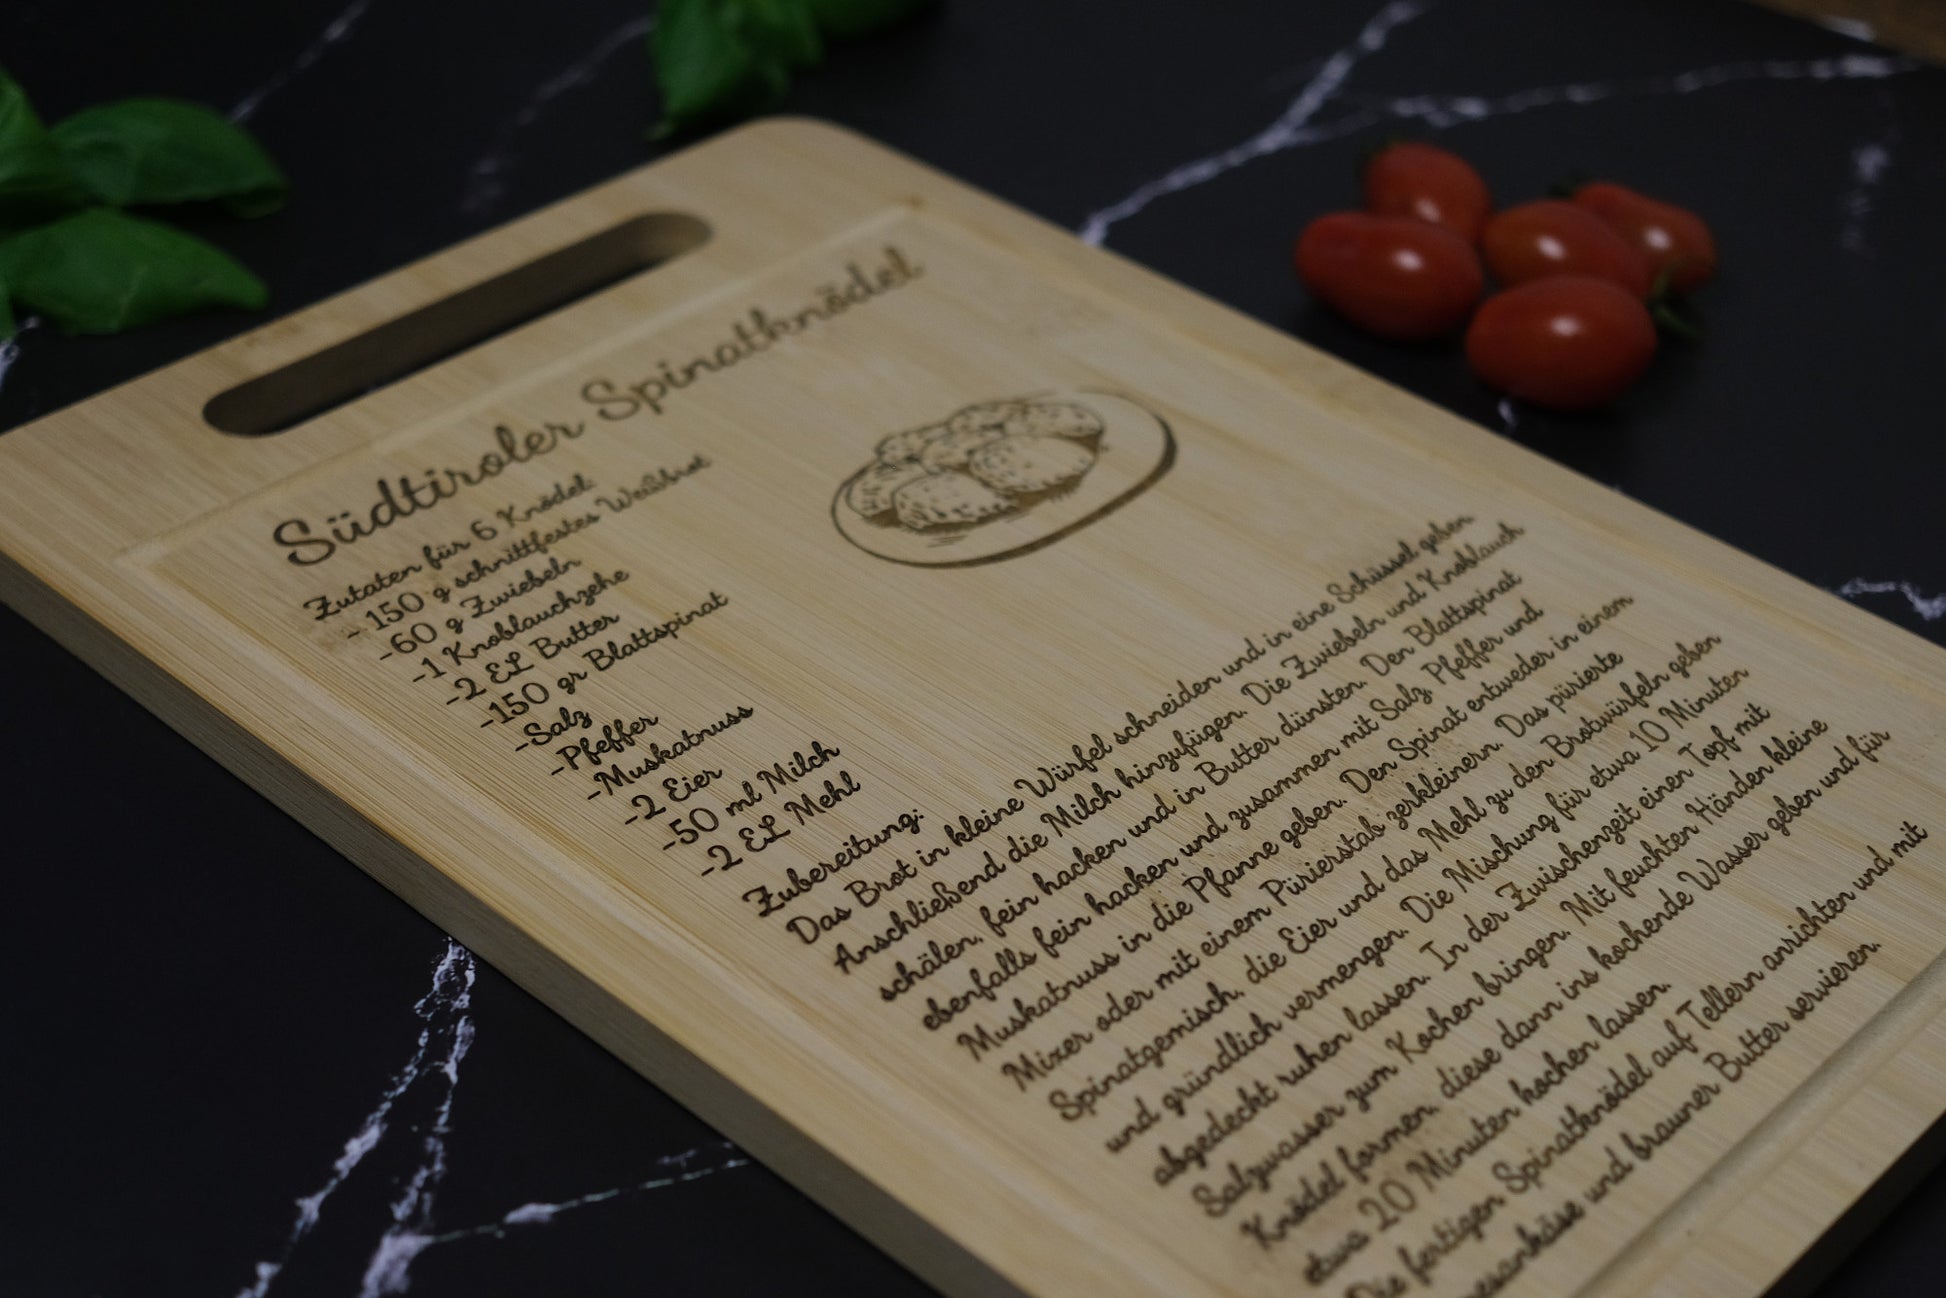 Südtiroler Spinatknödel
Zutaten für 6 Knödel:
- 150 g schnittfestes Weißbrot
-60 g Zwiebeln
-1 Knoblauchzehe
-2 EL Butter
-150 gr Blattspinat
-Salz
-Pfeffer
-Muskatnuss
-2 Eier
-50 ml Milch
-2 EL Mehl
Zubereitung:
Das Brot in kleine Würfel schneiden und in eine Schüssel geben
Anschließend die Milch hinzufügen. Die Zwiebeln und Knoblauch
schälen, fein hacken und in Butter dünsten. Den Blattspinat
ebenfalls fein hacken und zusammen mit Salz, Pfeffer und
Muskatnuss in die Pfanne geben. Den Spinat entweder in einem
Mixer oder mit einem Pürierstab zerkleinern. Das pürierte
Spinatgemisch, die Eier und das Mehl zu den Brotwürfeln geben
und gründlich vermengen. Die Mischung für etwa 10 Minuten
abgedeckt ruhen lassen. In der Zwischenzeit einen Topf mit
Salzwasser zum Kochen bringen. Mit feuchten Händen kleine
Knödel formen, diese dann ins kochende Wasser geben und für
etwa 20 Minuten kochen lassen.
Die fertigen Spinatknödel auf Tellern anrichten und mit
und brauner Butter servieren.